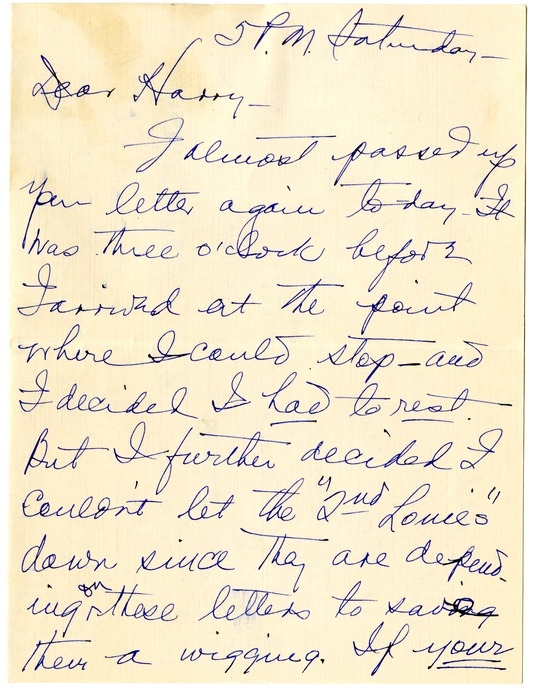 5 P.M. Saturday—
Dear Harry—
I almost passed up
your letter again to-day. It
was three o'clock before
I arrived at the point
where I could stop—and
I decided I had to rest.
But I further decided I
couldn't let the "2nd Louies"
down since they are depend-
ing on these letters to save
them a wigging. If your